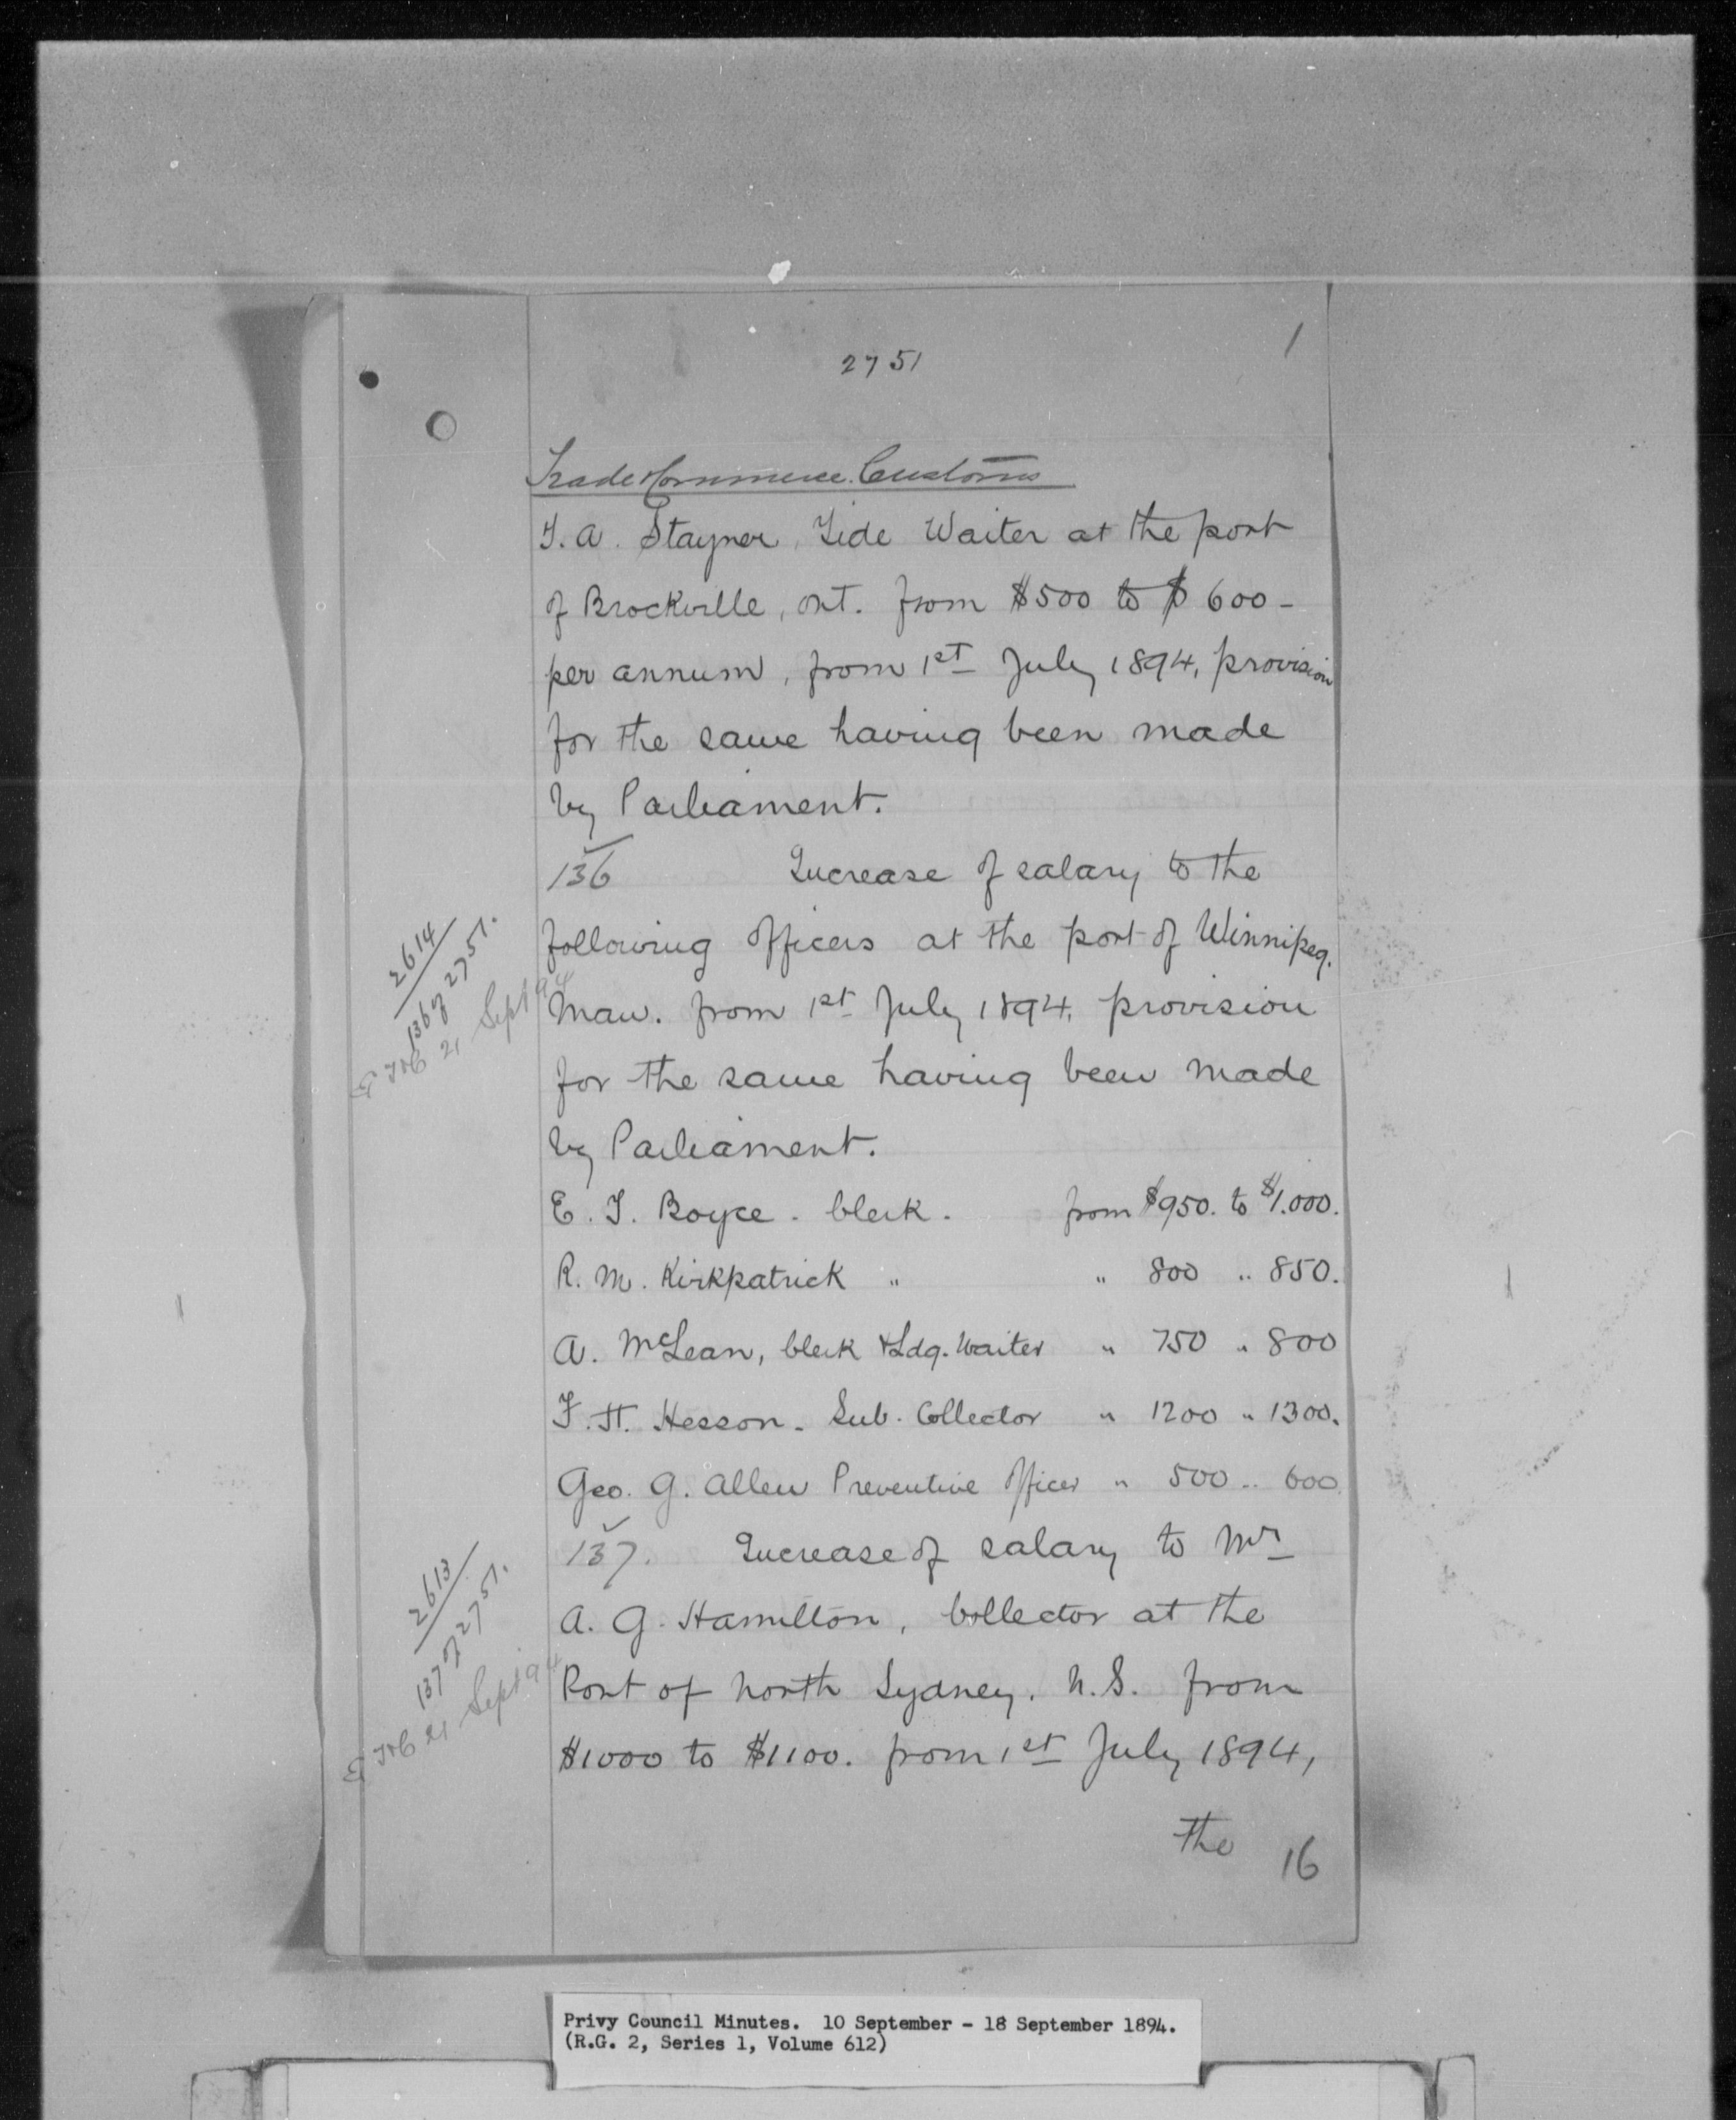 2751
1
Trade & Commerce. Customs
T. A. Stayner, Tide Waiter at the port
of Brockville, Ont. from $500 to $600-
per annum, from 1st July 1894, provision
for the same having been made
by Parliament.
136 Increase of salary to the
following officers at the port of Winnipeg.
Man. from 1st July 1894, provision
for the same having been made
by Parliament.
E. T. Boyce - Clerk. from $950. to $1.000.
R. M. Kirkpatrick " " 800 " 850.
A. McLean, Clerk & Ldg. Waiter " 750 " 800
F. H. Hesson - Sub. Collector " 1200 " 1300.
Geo. G. Allen Preventive Officer " 500 " 600
137. Increase of salary to Mr
A. G. Hamilton, Collector at the
Port of North Sydney, N.S. from
$1000 to $1100. from 1st July 1894,
the
16
2614
136 of 2751.
T&C 21 Sept 94
2613
137 of 2751.
T&C 21 Sept 94
Privy Council Minutes. 10 September - 18 September 1894.
(R.G. 2, Series 1, Volume 612)